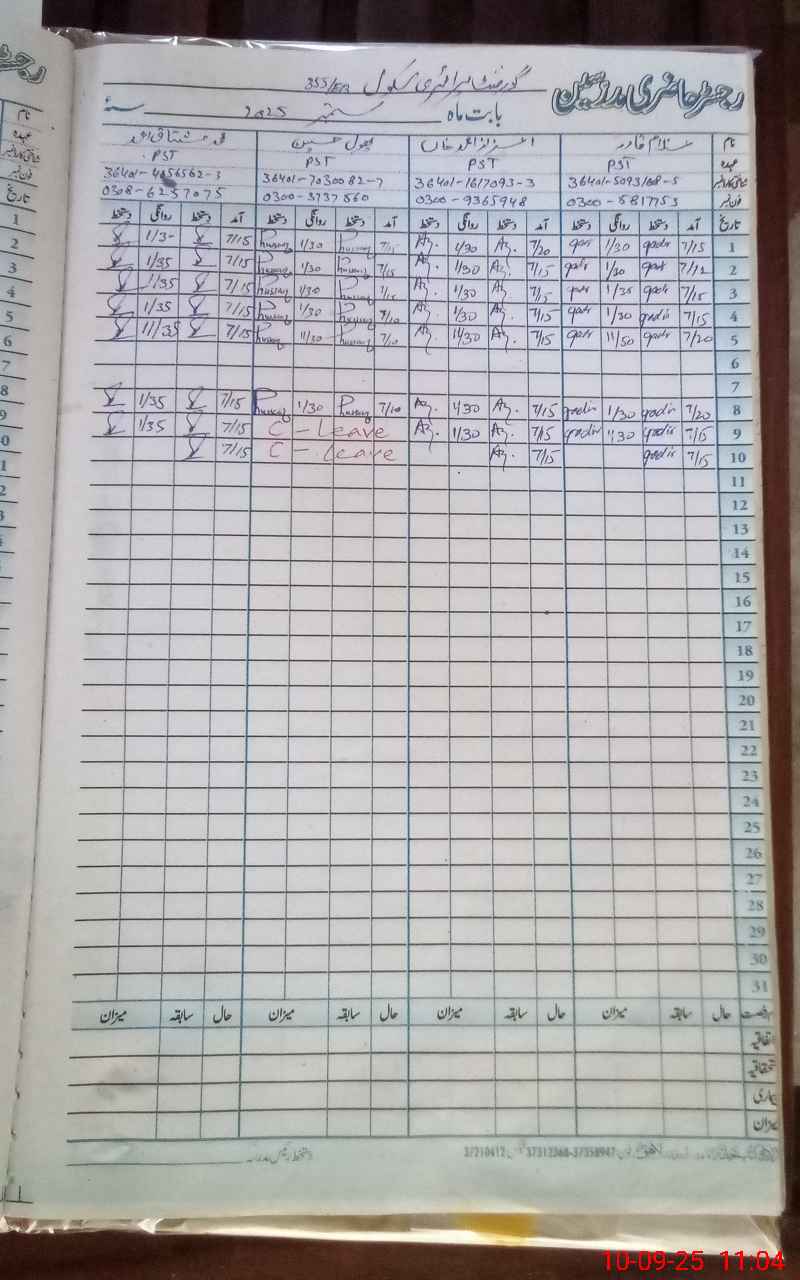 رجسٹر حاضری مدرسین
گورنمنٹ پرائمری سکول 355/EB
بابت ماہ ستمبر 2025 سنہ
نام غلام قادر اعزاز احمد خاں پھول حسین محمد مشتاق احمد
عہدہ PST PST PST PST
36401-5093108-5 36401-1617093-3 36401-7030082-7 36401-4056562-3
فون نمبر 0300-5817753 0300-9365948 0300-3737560 0308-6257075
تاریخ آمد دستخط روانگی دستخط آمد دستخط روانگی دستخط آمد دستخط روانگی دستخط آمد دستخط روانگی دستخط
1 7/15 qadir 1/30 7/20 Az. 1/30 Az. 7/15 1/30 7/15 1/3-
2 7/12 1/30 7/15 Az. 1/30 Az. 7/15 1/30 7/15 1/35
3 7/15 1/35 7/15 Az. 1/30 Az. 7/15 1/30 7/15 11/35
4 7/15 qadir 1/30 7/15 Az. 1/30 Az. 7/10 1/30 7/15 1/35
5 7/20 11/50 7/15 Az. 11/30 Az. 7/10 11/30 7/15 11/35
6
7
8 7/20 qadir 1/30 qadir 7/15 Az. 1/30 Az. 7/10 1/30 7/15 1/35
9 7/15 qadir 1/30 qadir 7/15 Az. 1/30 Az. C-Leave 7/15 1/35
10 7/15 qadir 7/15 Az. C-Leave 7/15
11
12
13
14
15
16
17
18
19
20
21
22
23
24
25
26
27
28
29
30
31
رخصت حال سابقہ میزان حال سابقہ میزان حال سابقہ میزان حال سابقہ میزان
اتفاقیہ
استحقاقیہ
بیماری
میزان
37358947-37312368
37210412
10-09-25 11:04